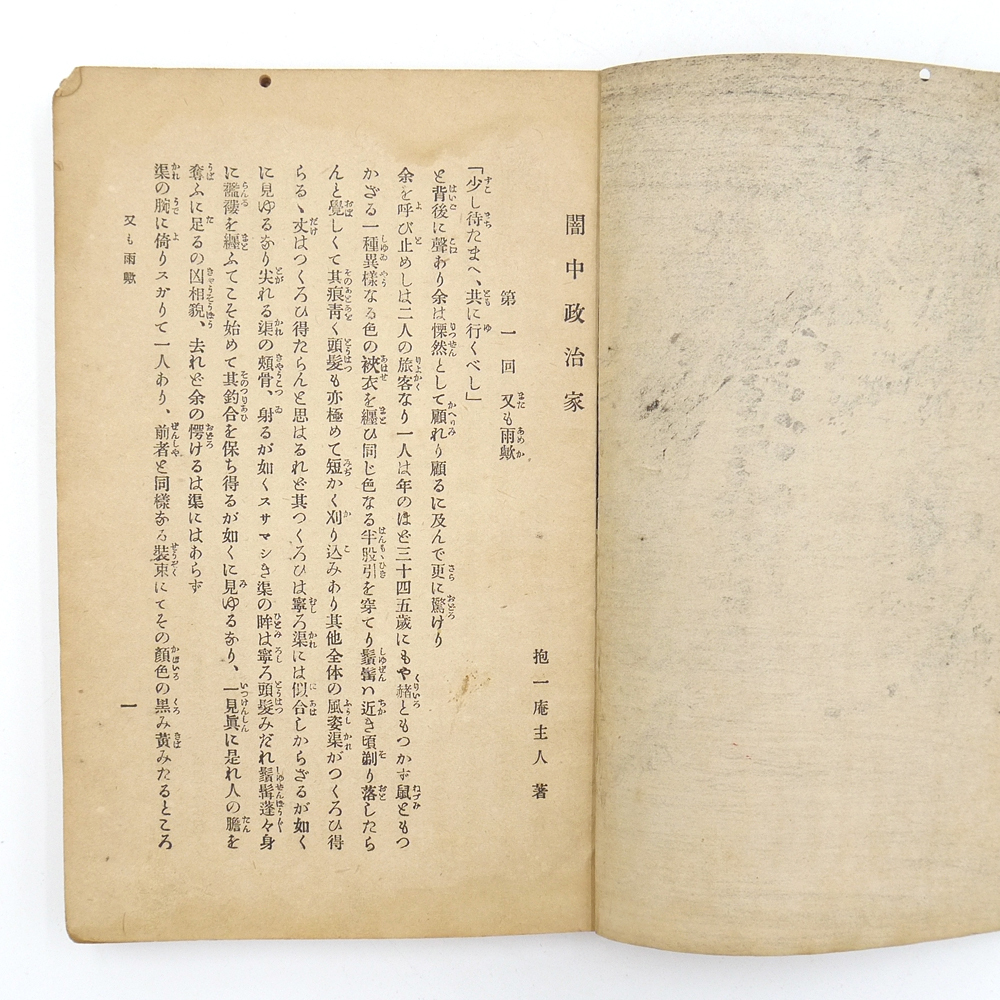 闇中政治家
抱一庵主人著
第一回　又も雨歟
「少し待たまへ、共に行くべし」
と背後に聲あり余は慄然として顧れり顧るに及んで更に驚けり
余を呼び止めしは二人の旅客なり一人は年のほど三十四五歳にもや赭ともつかず鼠ともつ
かざる一種異樣なる色の袂衣を纒ひ同じ色なる半股引を穿てり鬚髯ハ近き頃剃り落したら
んと覺しくて其痕靑く頭髮も亦極めて短かく刈り込みあり其他全体の風姿渠がつくろひ得
らるゝ丈はつくろひ得たらんと思はるれど其つくろひは寧ろ渠には似合しからざるが如く
に見ゆるなり尖れる渠の頰骨、射るが如くスサマシき渠の眸は寧ろ頭髮みだれ鬚髯蓬々身
に襤褸を纒ふてこそ始めて其釣合を保ち得るが如くに見ゆるなり、一見眞に是れ人の膽を
奪ふに足るの凶相貌、去れど余の愕けるは渠にはあらず
渠の腕に倚りスガりて一人あり、前者と同樣なる裝束にてその顏色の黑み黃みたるところ
又も雨歟
一